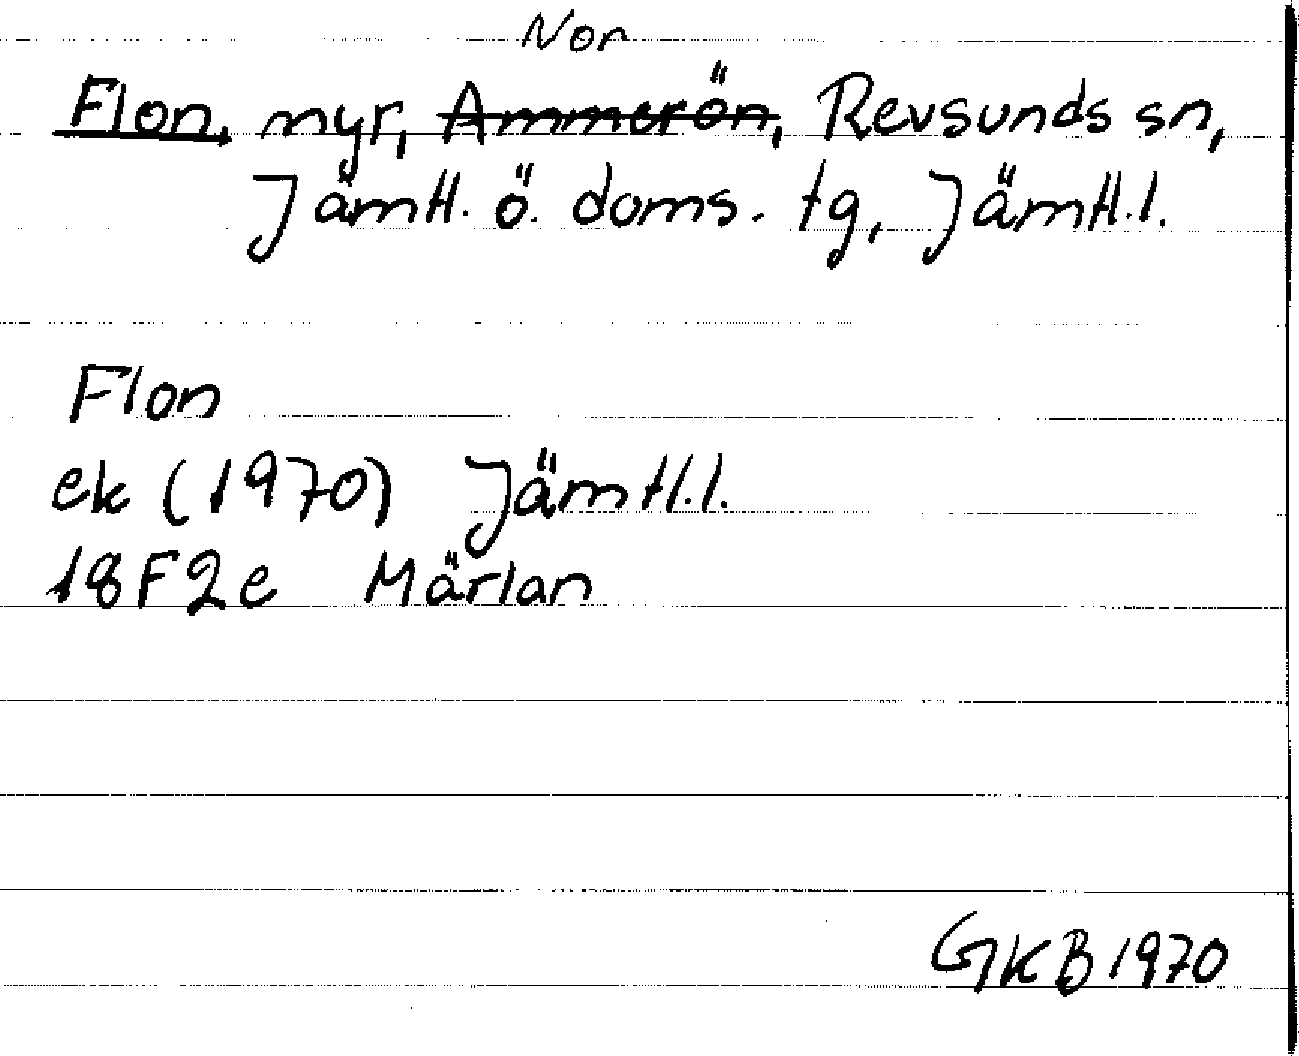 Nor
Flon, myr, Ammerön, Revsunds sn,
Jämtl. ö. doms. tg, Jämtl.l.
Flon
ek (1970) Jämtl.l.
18F2e Märlan
GKB 1970